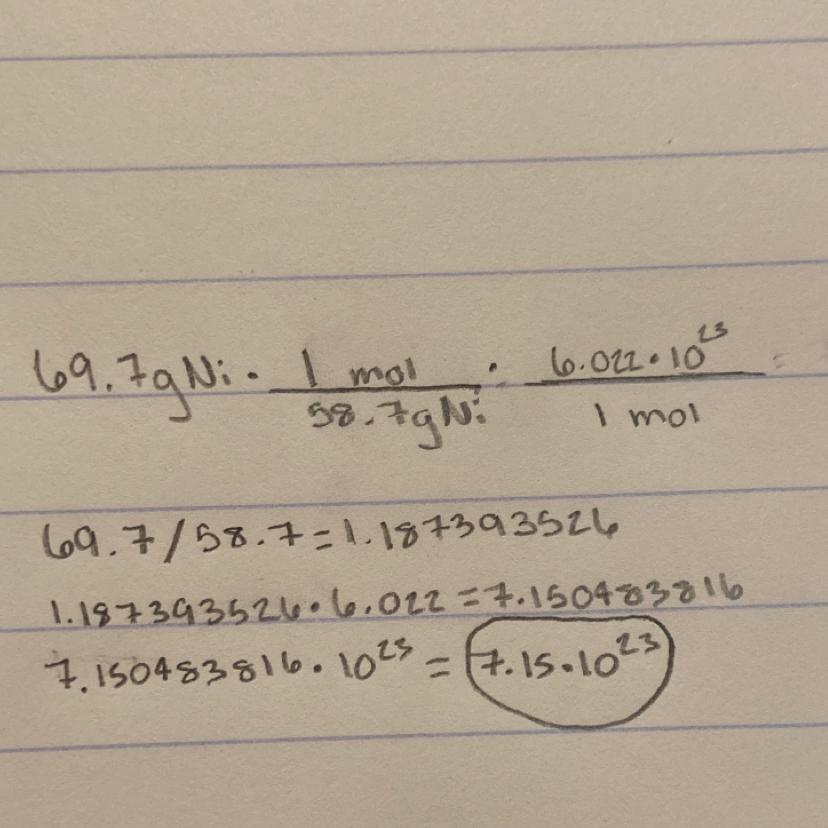 69.7gNi · 1 mol / 58.7gNi · 6.022·10²³ / 1 mol =
69.7/58.7=1.187393526
1.187393526·6.022=7.150483816
7.150483816·10²³ = 7.15·10²³